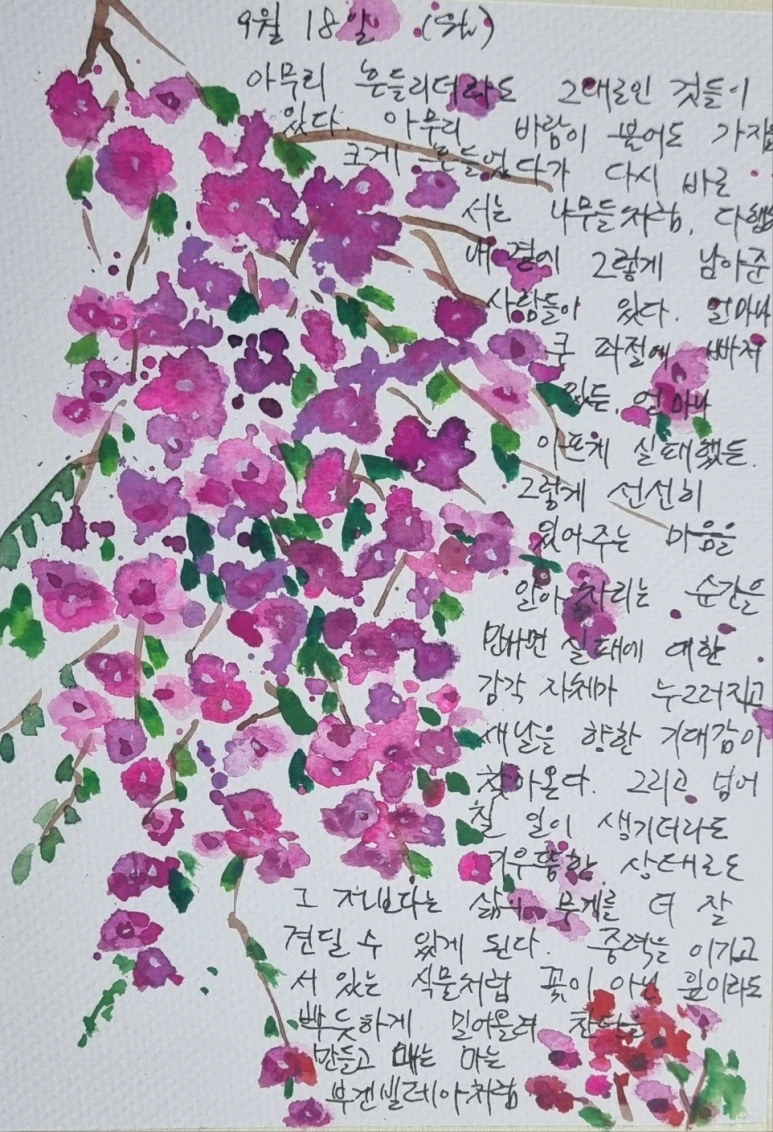 9월 18일 (월)
아무리 흔들리더라도 그대로인 것들이
있다. 아무리 바람이 불어도 가지를
크게 흔들었다가 다시 바로
서는 나무들처럼, 다행히
내 곁에 그렇게 남아준
사람들이 있다. 얼마나
큰 좌절에 빠져
있든, 얼마나
아프게 실패했든.
그렇게 선선히
웃어주는 마음을
알아차리는 순간을
만나면 실패에 대한
감각 자체가 누그러지고
새날을 향한 기대감이
찾아온다. 그리고 넘어
질 일이 생기더라도
기우뚱한 상태로도
그 전보다는 삶의 무게를 더 잘
견딜 수 있게 된다. 중력을 이기고
서 있는 식물처럼 꽃이 아닌 잎이라도
빠듯하게 밀어올려
만들고 마는
부겐빌레아처럼